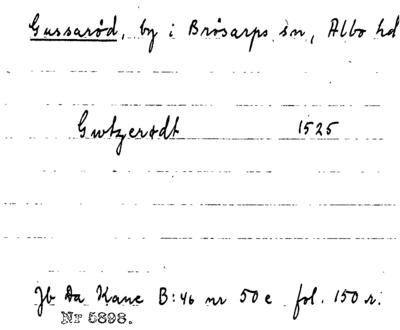 Gussaröd, by i Brösarps sn, Albo hd
Gwtzerødt 1525
Jb Da Kanc B:46 nr 50 e fol. 150 r.
Nr 5898.